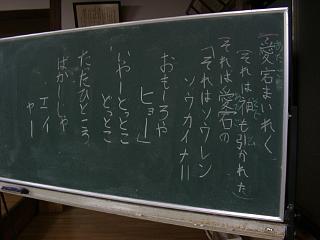 「愛宕まいれ〱
(それは袖も引かれた)
(それは愛宕の
「それはソウレン
ソウカイナー
おもしろや
ヒョー」
いやーとっとこ
とっとこ
ただひところ
ばかーじゃ
エイ
ヤー